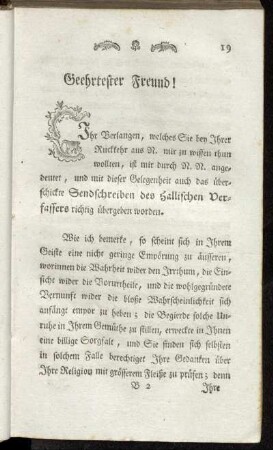 19
Geehrtester Freund!
Ihr Verlangen, welches Sie bey Ihrer
Ruckkehr aus N. mir zu wissen thun
wollten, ist mir durch N. N. ange-
deutet, und mit dieser Gelegenheit auch das über-
schickte Sendschreiben des Hallischen Ver-
fassers richtig übergeben worden.
Wie ich bemerke, so scheint sich in Ihrem
Geiste eine nicht geringe Empörung zu äusseren,
worinnen die Wahrheit wider den Irrthum, die Ein-
sicht wider die Vorurtheile, und die wohlgegründete
Vernunft wider die bloße Wahrscheinlichkeit sich
anfängt empor zu heben; die Begierde solche Un-
ruhe in Ihrem Gemüthe zu stillen, erwecke in Ihnen
eine billige Sorgfalt, und Sie finden sich selbsten
in solchem Falle berechtiget Ihre Gedanken über
Ihre Religion mit grösserem Fleiße zu prüfen; denn
B 2 Ihre